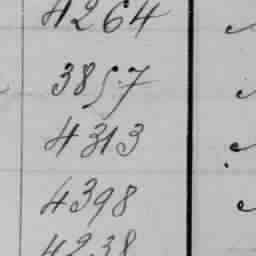 4264
3857
4313
4398
4238